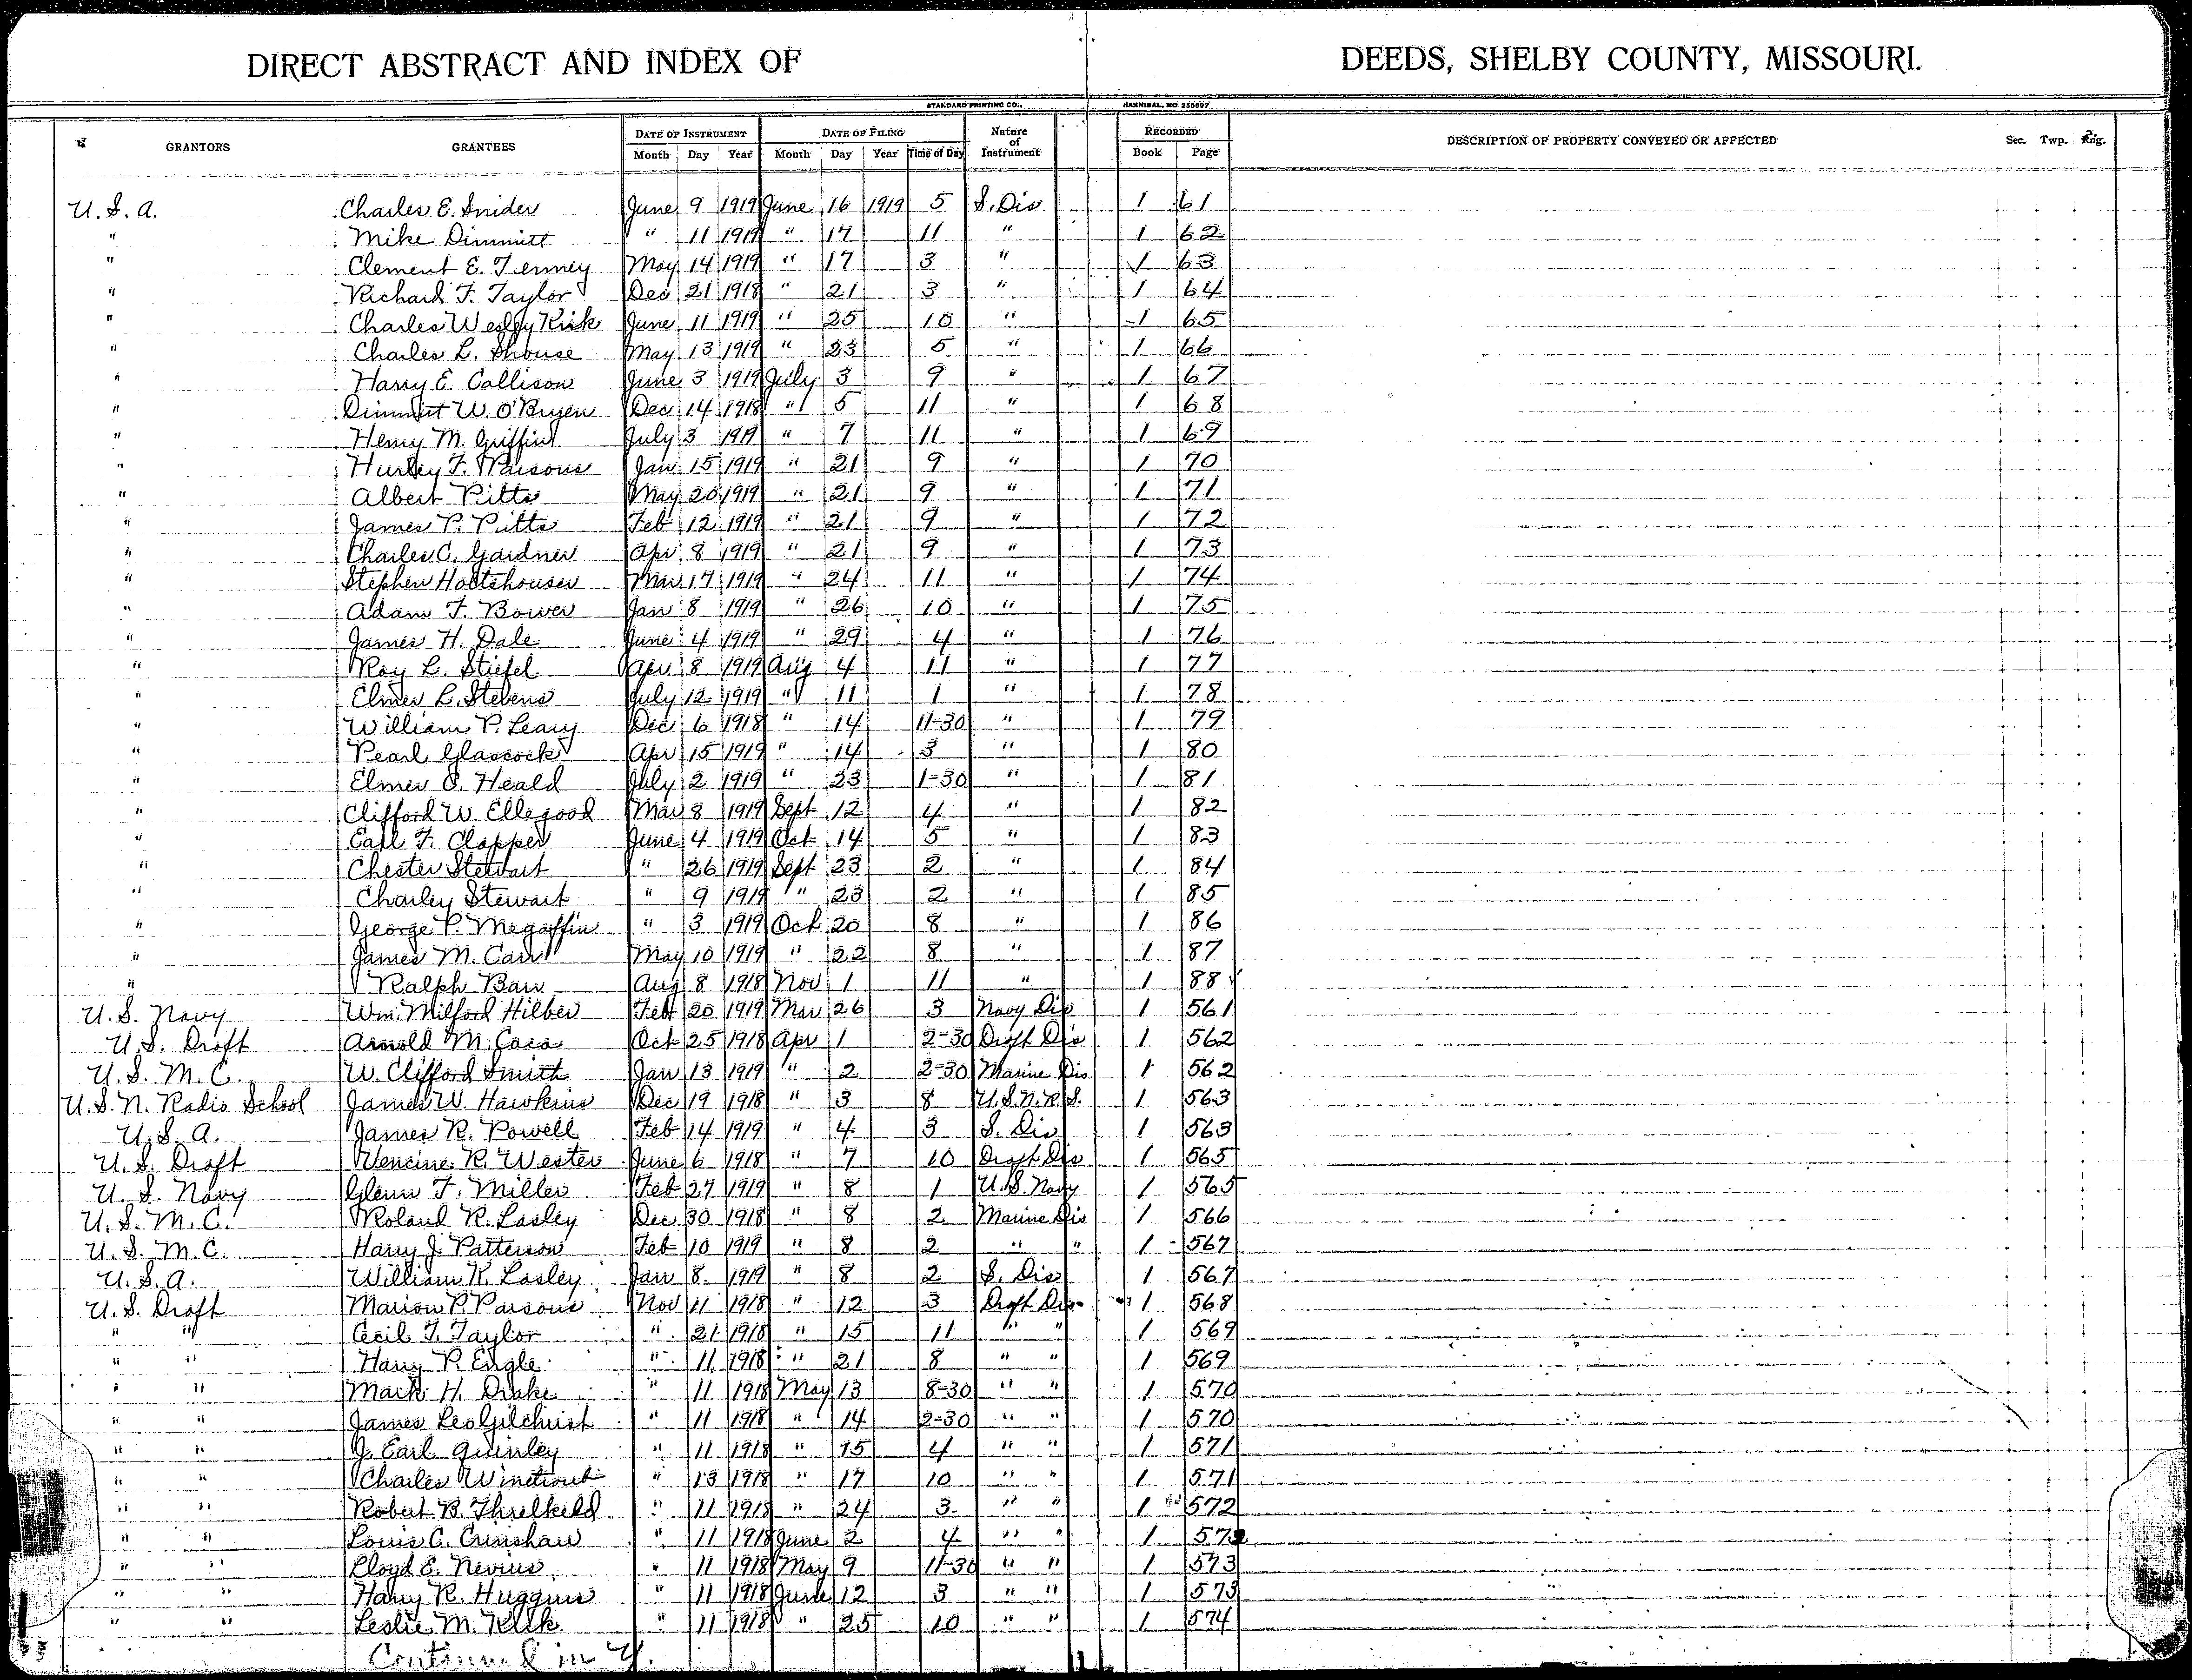 DIRECT ABSTRACT AND INDEX OF DEEDS, SHELBY COUNTY, MISSOURI.
STANDARD PRINTING CO., HANNIBAL, MO 256697
GRANTORS GRANTEES DATE OF INSTRUMENT DATE OF FILING Nature of Instrument RECORDED DESCRIPTION OF PROPERTY CONVEYED OR AFFECTED Sec. Twp. Rng.
Month Day Year Month Day Year Time of Day Book Page
U.S.A. Charles E. Snider June 9 1919 June 16 1919 5 S. Dis 1 61
" Mike Dimmitt " 11 1919 " 17 11 " 1 62
" Clement E. Tenney May 14 1919 " 17 3 " 1 63
" Richard F. Taylor Dec 21 1918 " 21 3 " 1 64
" Charles Wesley Kirk June 11 1919 " 25 10 " 1 65
" Charles L. Shouse May 13 1919 " 23 5 " 1 66
" Harry E. Callison June 3 1919 July 3 9 " 1 67
" Dimmitt W. O'Bryen Dec 14 1918 " 5 11 " 1 68
" Henry M. Griffin July 3 1919 " 7 11 " 1 69
" Hurley F. Parsons Jan 15 1919 " 21 9 " 1 70
" Albert Pitts May 20 1919 " 21 9 " 1 71
" James P. Pitts Feb 12 1919 " 21 9 " 1 72
" Charles C. Gardner Apr 8 1919 " 21 9 " 1 73
" Stephen Holtshouser Mar 17 1919 " 24 11 " 1 74
" Adam F. Bower Jan 8 1919 " 26 10 " 1 75
" James H. Dale June 4 1919 " 29 4 " 1 76
" Roy L. Stiefel Apr 8 1919 Aug 4 11 " 1 77
" Elmer L. Stevens July 12 1919 " 11 1 " 1 78
" William P. Leary Dec 6 1918 " 14 11-30 " 1 79
" Pearl Glascock Apr 15 1919 " 14 3 " 1 80
" Elmer O. Heald July 2 1919 " 23 1-30 " 1 81
" Clifford W Ellegood Mar 8 1919 Sept 12 4 " 1 82
" Earl F. Clapper June 4 1919 Oct 14 5 " 1 83
" Chester Stewart " 26 1919 Sept 23 2 " 1 84
" Charley Stewart " 9 1919 " 23 2 " 1 85
" George P. Megaffin " 3 1919 Oct 20 8 " 1 86
" James M. Carr May 10 1919 " 22 8 " 1 87
" Ralph Barr Aug 8 1918 Nov 1 11 " 1 88
U.S. Navy Wm. Milford Hilber Feb 20 1919 Mar 26 3 Navy Dis 1 561
U.S. Draft Arnold M. Oct 25 1918 Apr 1 2-30 Draft Dis 1 562
U.S.M.C. W. Clifford Smith Jan 13 1919 " 2 2-30 Marine Dis 1 562
U.S.N. Radio School James W. Hawkins Dec 19 1918 " 3 8 U.S.N.R.S. 1 563
U.S.A. James R. Powell Feb 14 1919 " 4 3 S. Dis 1 563
U.S. Draft R. Wester June 6 1918 " 7 10 Draft Dis 1 565
U.S. Navy Glenn F. Miller Feb 27 1919 " 8 1 U.S. Navy 1 565
U.S.M.C. Roland R. Lasley Dec 30 1918 " 8 2 Marine Dis 1 566
U.S.M.C. Harry J. Patterson Feb 10 1919 " 8 2 " " 1 567
U.S.A. William K. Lasley Jan 8 1919 " 8 2 S. Dis 1 567
U.S. Draft Marion P. Parsons Nov 11 1918 " 12 3 Draft Dis 1 568
" " Cecil F. Taylor " 21 1918 " 15 11 " " 1 569
" " Harry P. Engle " 11 1918 " 21 8 " " 1 569
" " Mark H. Drake " 11 1918 May 13 8-30 " " 1 570
" " James Leo Gilchrist " 11 1918 " 14 2-30 " " 1 570
" " J. Earl Quinley " 11 1918 " 15 4 " " 1 571
" " Charles Winetrout " 13 1918 " 17 10 " " 1 571
" " Robert B. Threlkeld " 11 1918 " 24 3 " " 1 572
" " Louis C. Crenshaw " 11 1918 June 2 4 " " 1 572
" " Lloyd E. Nevius " 11 1918 May 9 11-30 " " 1 573
" " Harry R. Huggins " 11 1918 June 12 3 " " 1 573
" " Leslie M. Kirk " 11 1918 " 25 10 " " 1 574
Continued in Y.